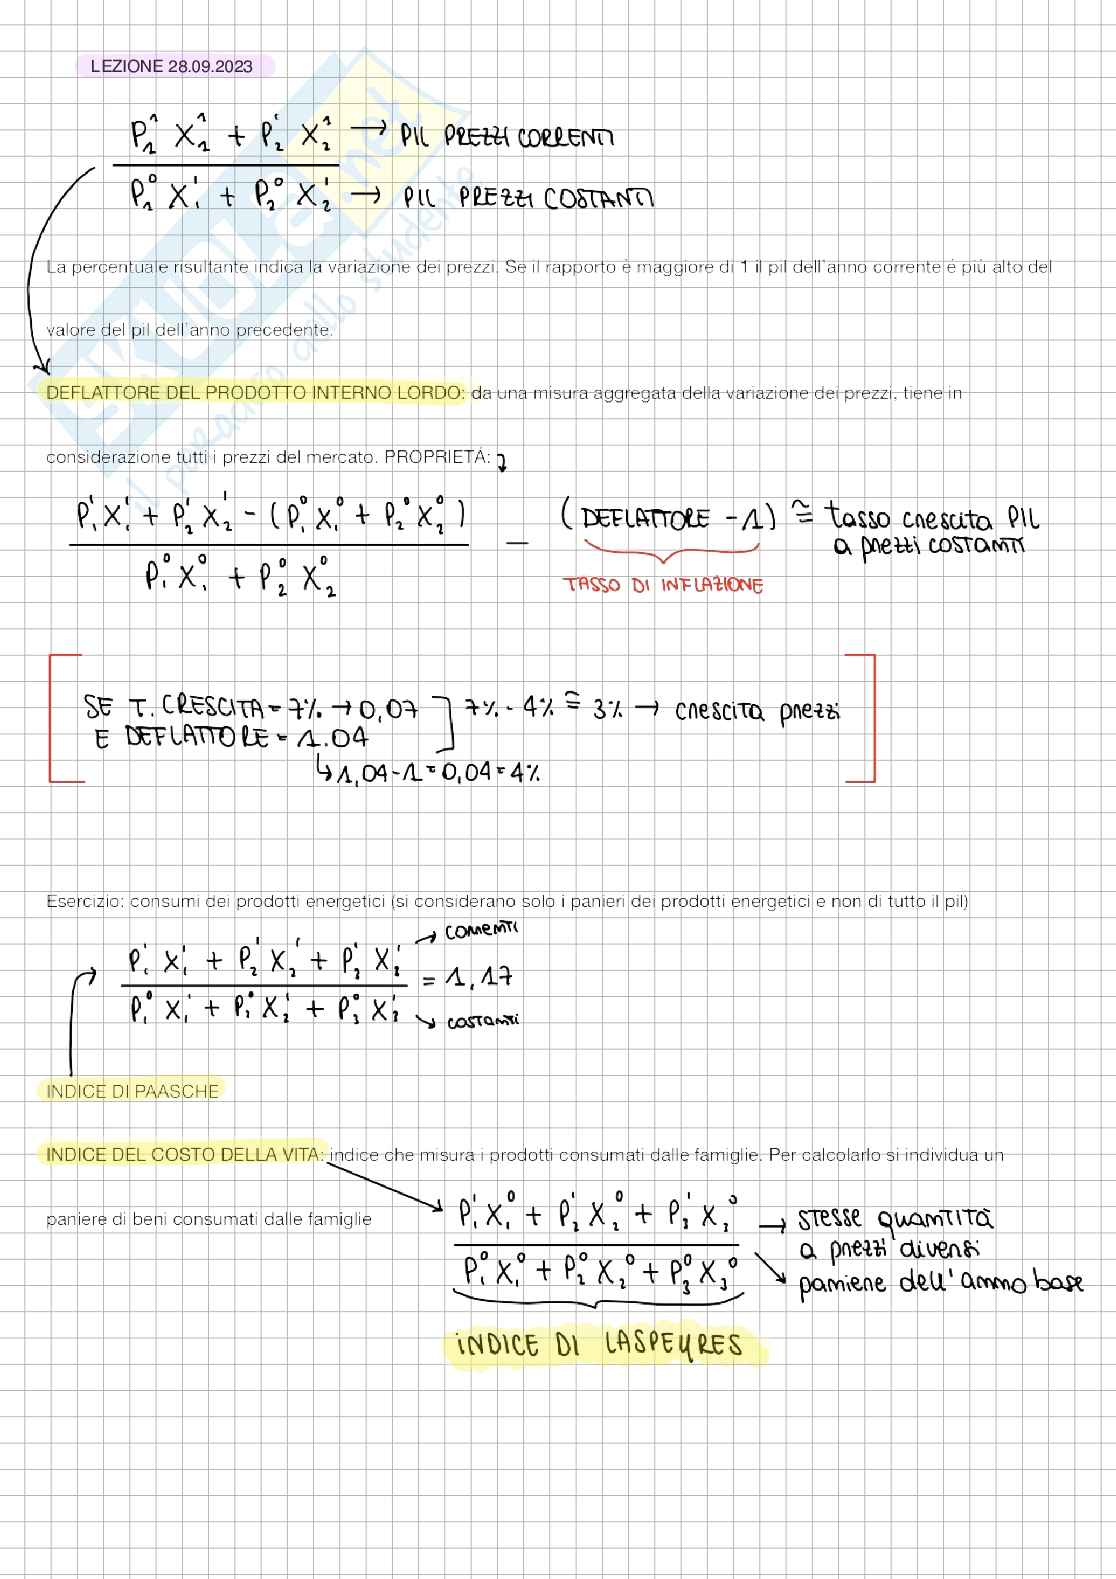 LEZIONE 28.09.2023
P₁¹ X₁¹ + P₂¹ X₂¹ → PIL PREZZI CORRENTI
P₁⁰ X₁¹ + P₂⁰ X₂¹ → PIL PREZZI COSTANTI
La percentuale risultante indica la variazione dei prezzi. Se il rapporto è maggiore di 1 il pil dell'anno corrente è più alto del
valore del pil dell'anno precedente.
DEFLATTORE DEL PRODOTTO INTERNO LORDO: da una misura aggregata della variazione dei prezzi, tiene in
considerazione tutti i prezzi del mercato. PROPRIETÀ:
P₁¹ X₁¹ + P₂¹ X₂¹ - (P₁⁰ X₁⁰ + P₂⁰ X₂⁰)
P₁⁰ X₁⁰ + P₂⁰ X₂⁰
— (DEFLATTORE - 1) ≅ tasso crescita PIL
a prezzi COSTANTI
TASSO DI INFLAZIONE
SE T. CRESCITA = 7% → 0,07
E DEFLATTORE = 1.04
7% - 4% ≅ 3% → crescita prezzi
↳ 1,04 - 1 = 0,04 = 4%
Esercizio: consumi dei prodotti energetici (si considerano solo i panieri dei prodotti energetici e non di tutto il pil)
P₁¹ X₁¹ + P₂¹ X₂¹ + P₃¹ X₃¹ → correnti
= 1,17
P₁⁰ X₁¹ + P₂⁰ X₂¹ + P₃⁰ X₃¹ → costanti
INDICE DI PAASCHE
INDICE DEL COSTO DELLA VITA: indice che misura i prodotti consumati dalle famiglie. Per calcolarlo si individua un
paniere di beni consumati dalle famiglie
P₁¹ X₁⁰ + P₂¹ X₂⁰ + P₃¹ X₃⁰ → stesse quantità
a prezzi diversi
P₁⁰ X₁⁰ + P₂⁰ X₂⁰ + P₃⁰ X₃⁰ → paniere dell'anno base
INDICE DI LASPEYRES
SKUOLA.net
il paradiso dello studente